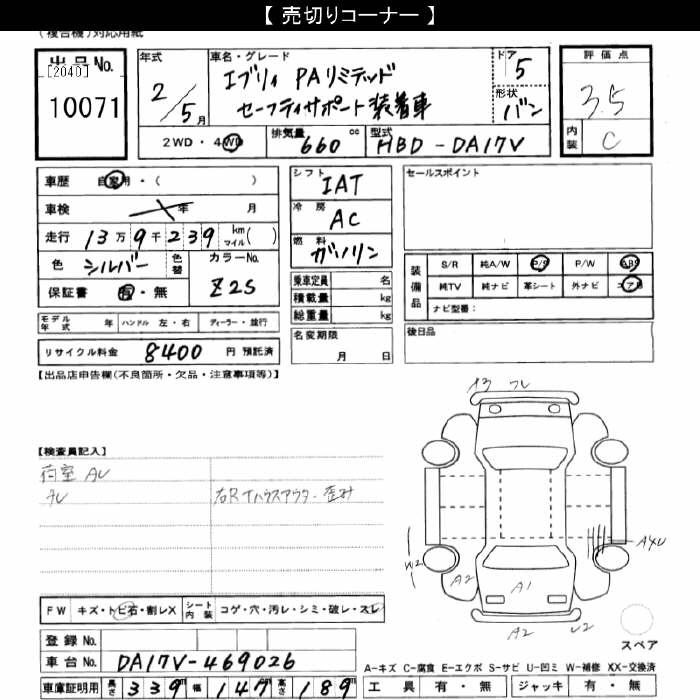 【 売切りコーナー 】
(複合機)対応用紙
出品No.
[2040]
10071
年式
2/5月
車名・グレード
エブリィ PAリミテッド
セーフティサポート装着車
ドア
5
形状
バン
評価点
3.5
内装
C
2WD・4WD
排気量
660 cc
型式
HBD-DA17V
車歴 自家用・( )
車検 年 月
走行 13万9千239 km マイル( )
色 シルバー 色替 カラーNo. Z2S
保証書 有・無
シフト IAT
冷房 AC
燃料 ガソリン
乗車定員 名
積載量 kg
総重量 kg
セールスポイント
装備品
S/R 純A/W P/S P/W ABS
純TV 純ナビ 革シート 外ナビ エアB
ナビ型番:
モデル年式 年 ハンドル 左・右 ディーラー・並行
リサイクル料金 8400 円 預託済
名変期限
月 日
後日品
【出品店申告欄(不良箇所・欠品・注意事項等)】
【検査員記入】
荷室 AU
右Rタイヤハウスアウター 歪み
A3
A4U
W2
A2
A1
A2
U2
FW キズ・トビ石・割レX シート内装 コゲ・穴・汚レ・シミ・破レ・スレ
スペア
登録No.
車台No. DA17V-469026
A-キズ C-腐食 E-エクボ S-サビ U-凹ミ W-補修 XX-交換済
車庫証明用 長さ 339 幅 147 高さ 189
工具 有・無 ジャッキ 有・無